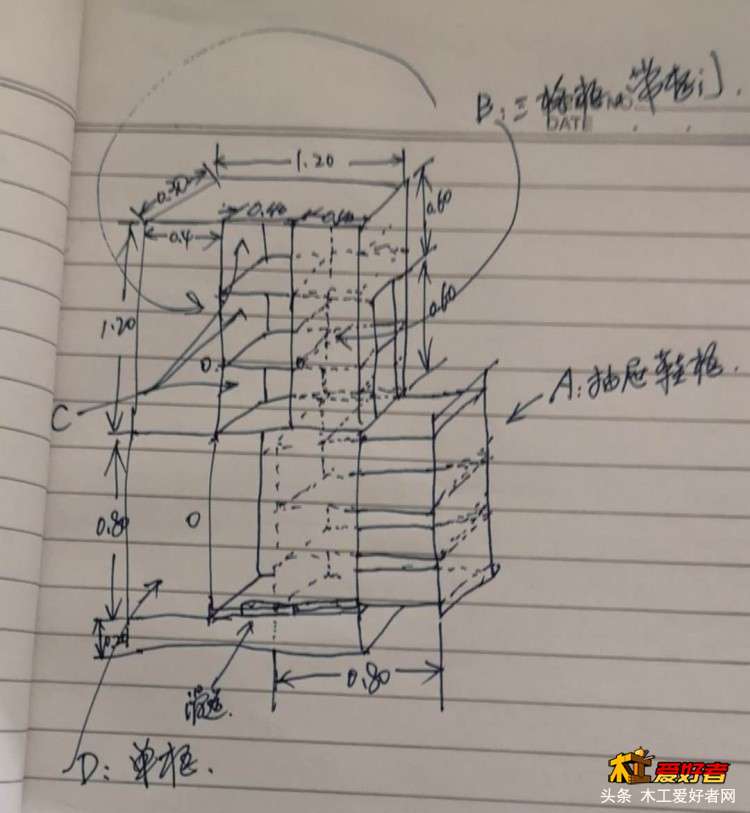 B:三格柜,带柜门.
DATE
1.20
0.30
0.40
0.40
0.60
0.4
0.60
1.20
C
A:抽屉鞋柜.
0.80
0.20
滑道.
0.80
D:单柜.
木工爱好者
头条 木工爱好者网